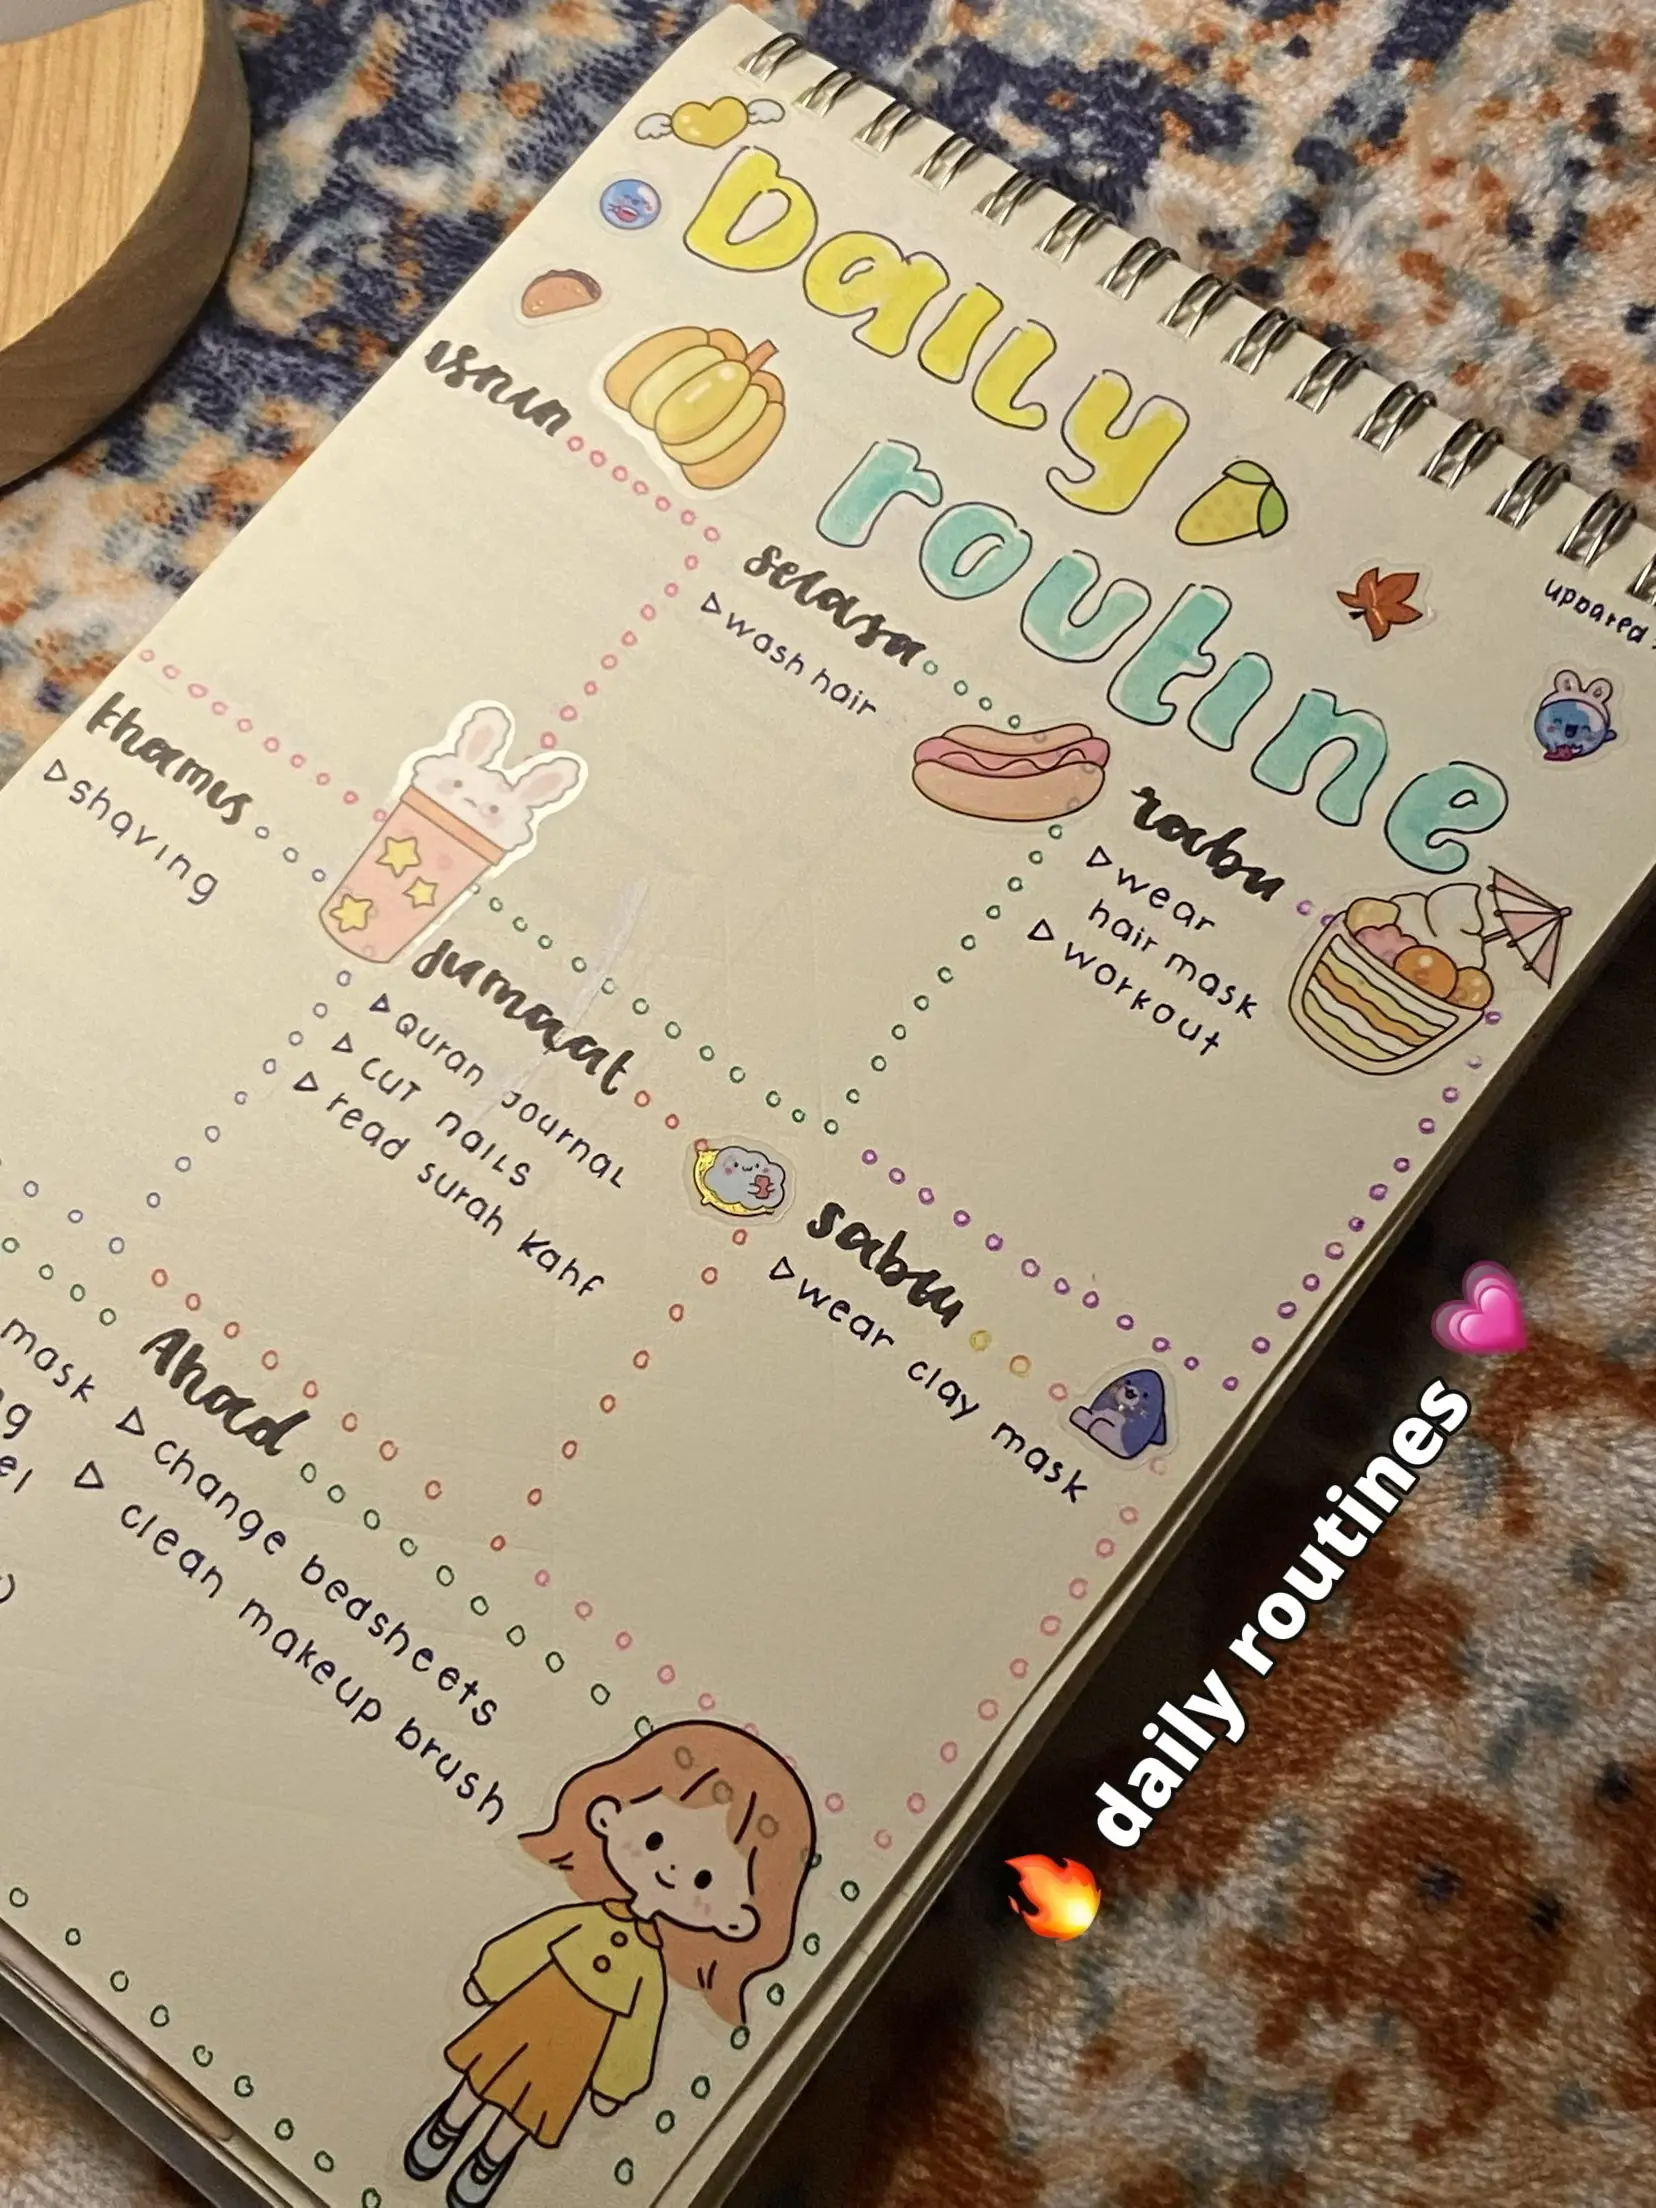 Daily
routine
updated
isnin
selasa
▷ wash hair
rabu
▷ wear
hair mask
▷ workout
khamis
▷ shaving
jumaat
▷ Quran journal
▷ cut nails
▷ read surah kahf
sabu
▷ wear clay mask
mask
Ahad
▷ change bedsheets
▷ clean makeup brush
daily routines